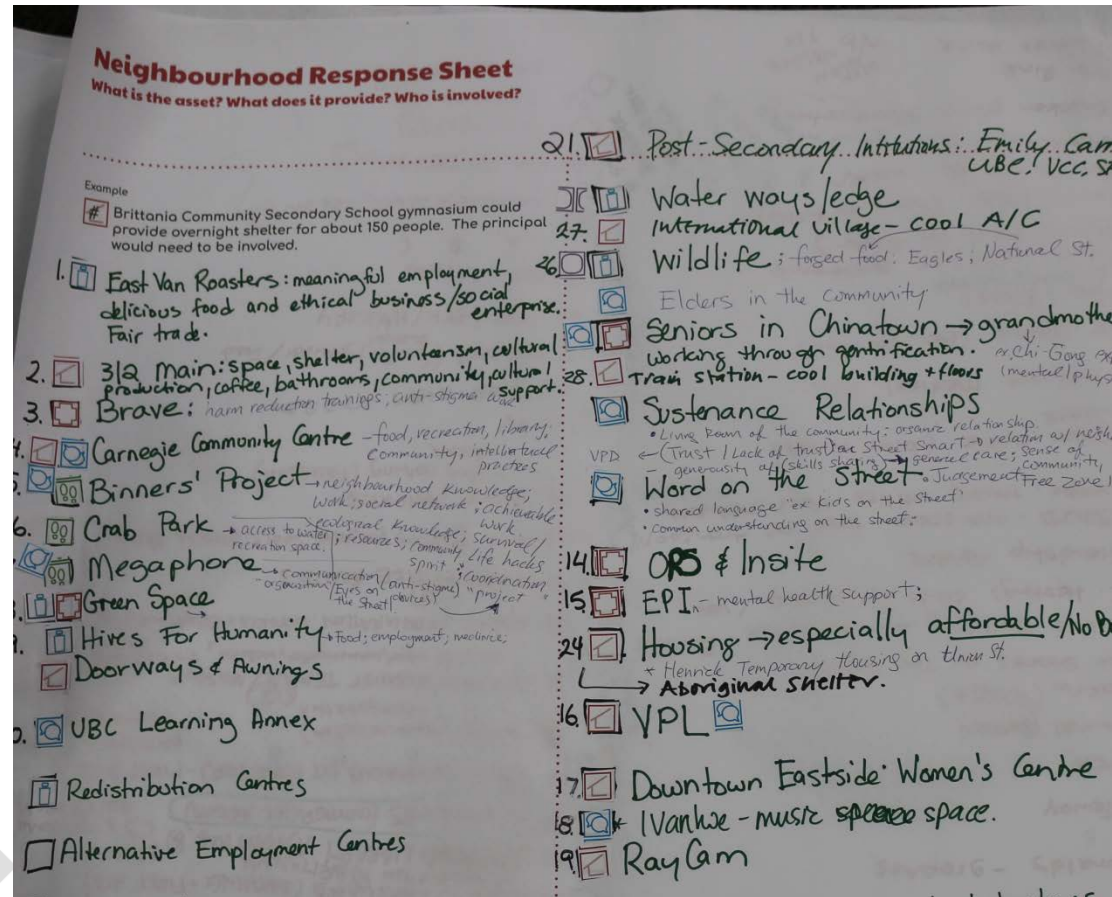 Neighbourhood Response Sheet
What is the asset? What does it provide? Who is involved?
Example
# Brittania Community Secondary School gymnasium could
provide overnight shelter for about 150 people. The principal
would need to be involved.
1. East Van Roasters: meaningful employment,
delicious food and ethical business/social
enterprise.
Fair trade.
2. 312 Main: space, shelter, volunteerism, cultural
production, coffee, bathrooms, community, cultural
support.
3. Brave: harm reduction trainings; anti-stigma
4. Carnegie Community Centre - food, recreation, library,
community, intellectual
practices
5. Binners' Project → neighbourhood knowledge;
work; social network; achievable
work
6. Crab Park → access to water
recreation space;
ecological knowledge; survival/
resources; community
spirit
life hacks
Megaphone → communication/(anti-stigma)
organization/Eyes on
the street
coordination
"project"
Green Space
Hives For Humanity → food; employment; medicine;
Doorways & Awnings
UBC Learning Annex
Redistribution Centres
Alternative Employment Centres
21. Post-Secondary Intitutions: Emily Carr
UBC! VCC,
Water ways/edge
27. International Village - cool A/C
26. Wildlife; forged food. Eagles; National St.
Elders in the community
Seniors in Chinatown → grandmothe
working through gentrification.
ex. Chi-Gong
(mental/phys
28. Train station - cool building + floors
Sustenance Relationships
• Living Room of the community: organic relationship.
VPD ← (Trust / Lack of trust) Street Smart → relation w/ neigh
- generousity of (skills sharing) → general care; sense of
community,
Word on the Street • Judgement Free Zone!
• shared language "ex Kids on the Street"
• common understanding on the street.
14. OPS & Insite
15. EPI - mental health support;
24. Housing → especially affordable/No B
* Henrick Temporary Housing on Union St.
→ Aboriginal Shelter.
16. VPL
17. Downtown Eastside Women's Centre
18. Ivanhoe - music space.
19. RayCam